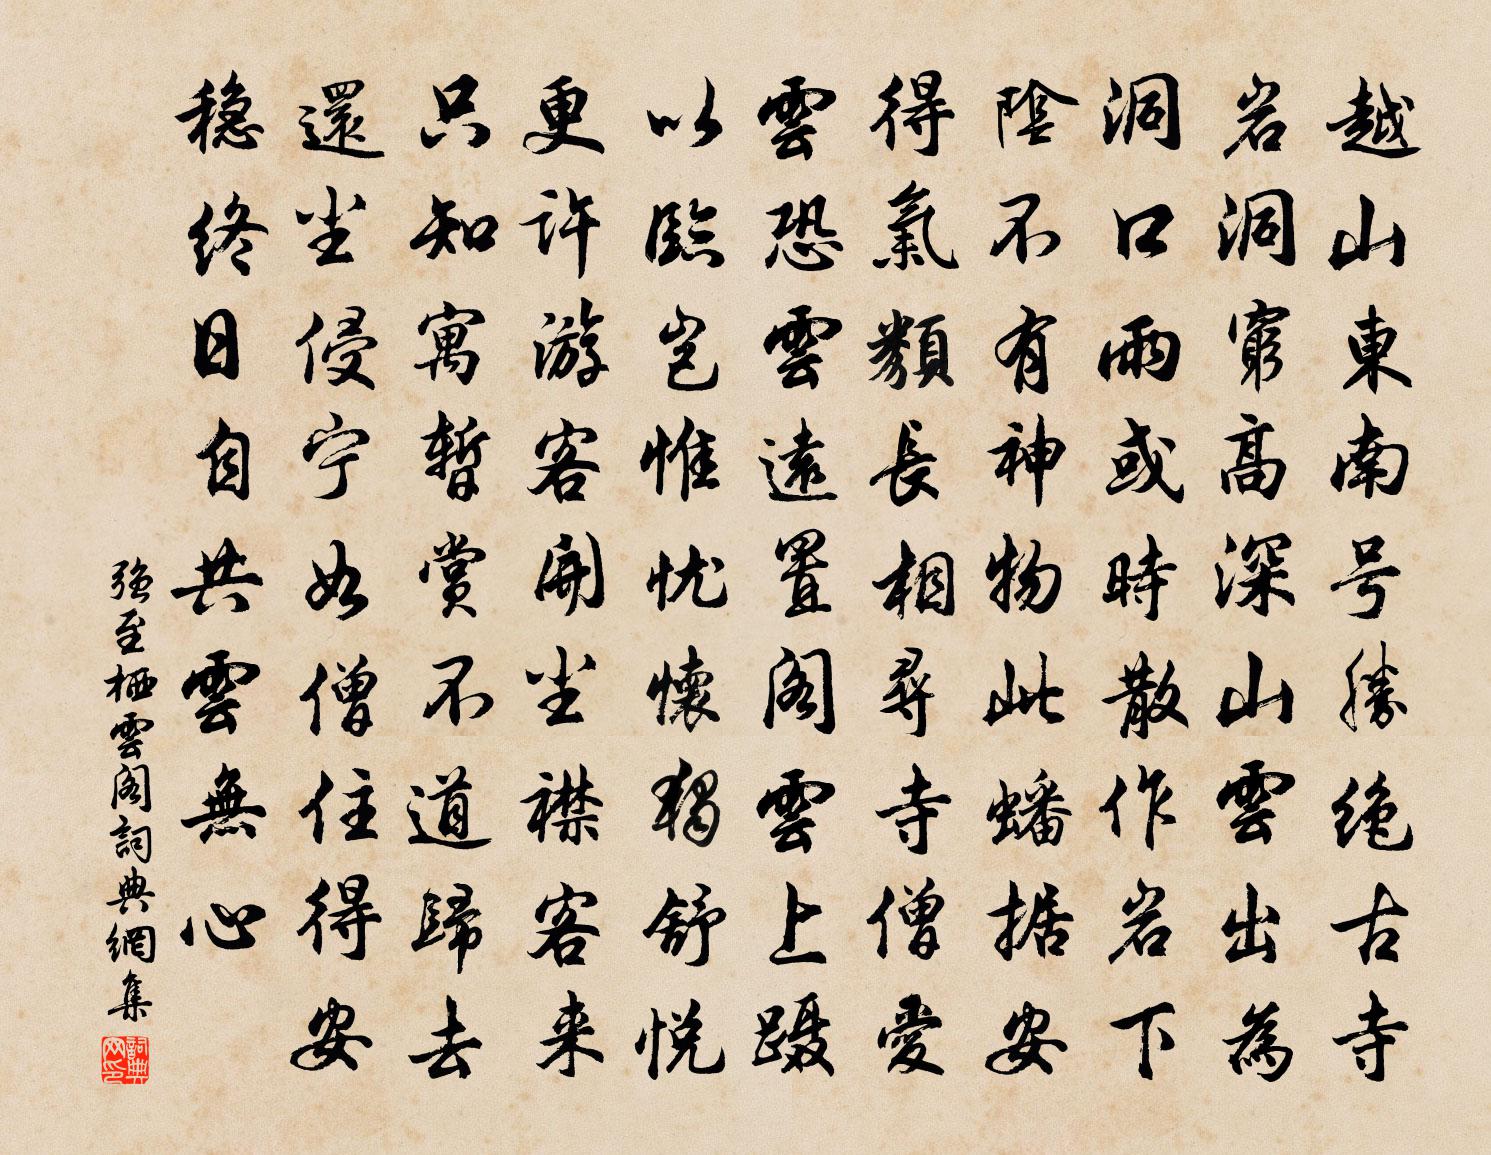 越山東南号勝绝古寺
岩洞窮高深山雲出為
洞口雨或時散作岩下
陰不有神物此蟠据安
得氣類長相尋寺僧愛
雲恐雲遠置阁雲上蹑
以臨岂惟忧懷獨舒悦
更许游客開尘襟客来
只知寓暫赏不道歸去
還尘侵宁如僧住得安
稳终日自共雲無心
強至栖雲阁詞典網集
詞典网印